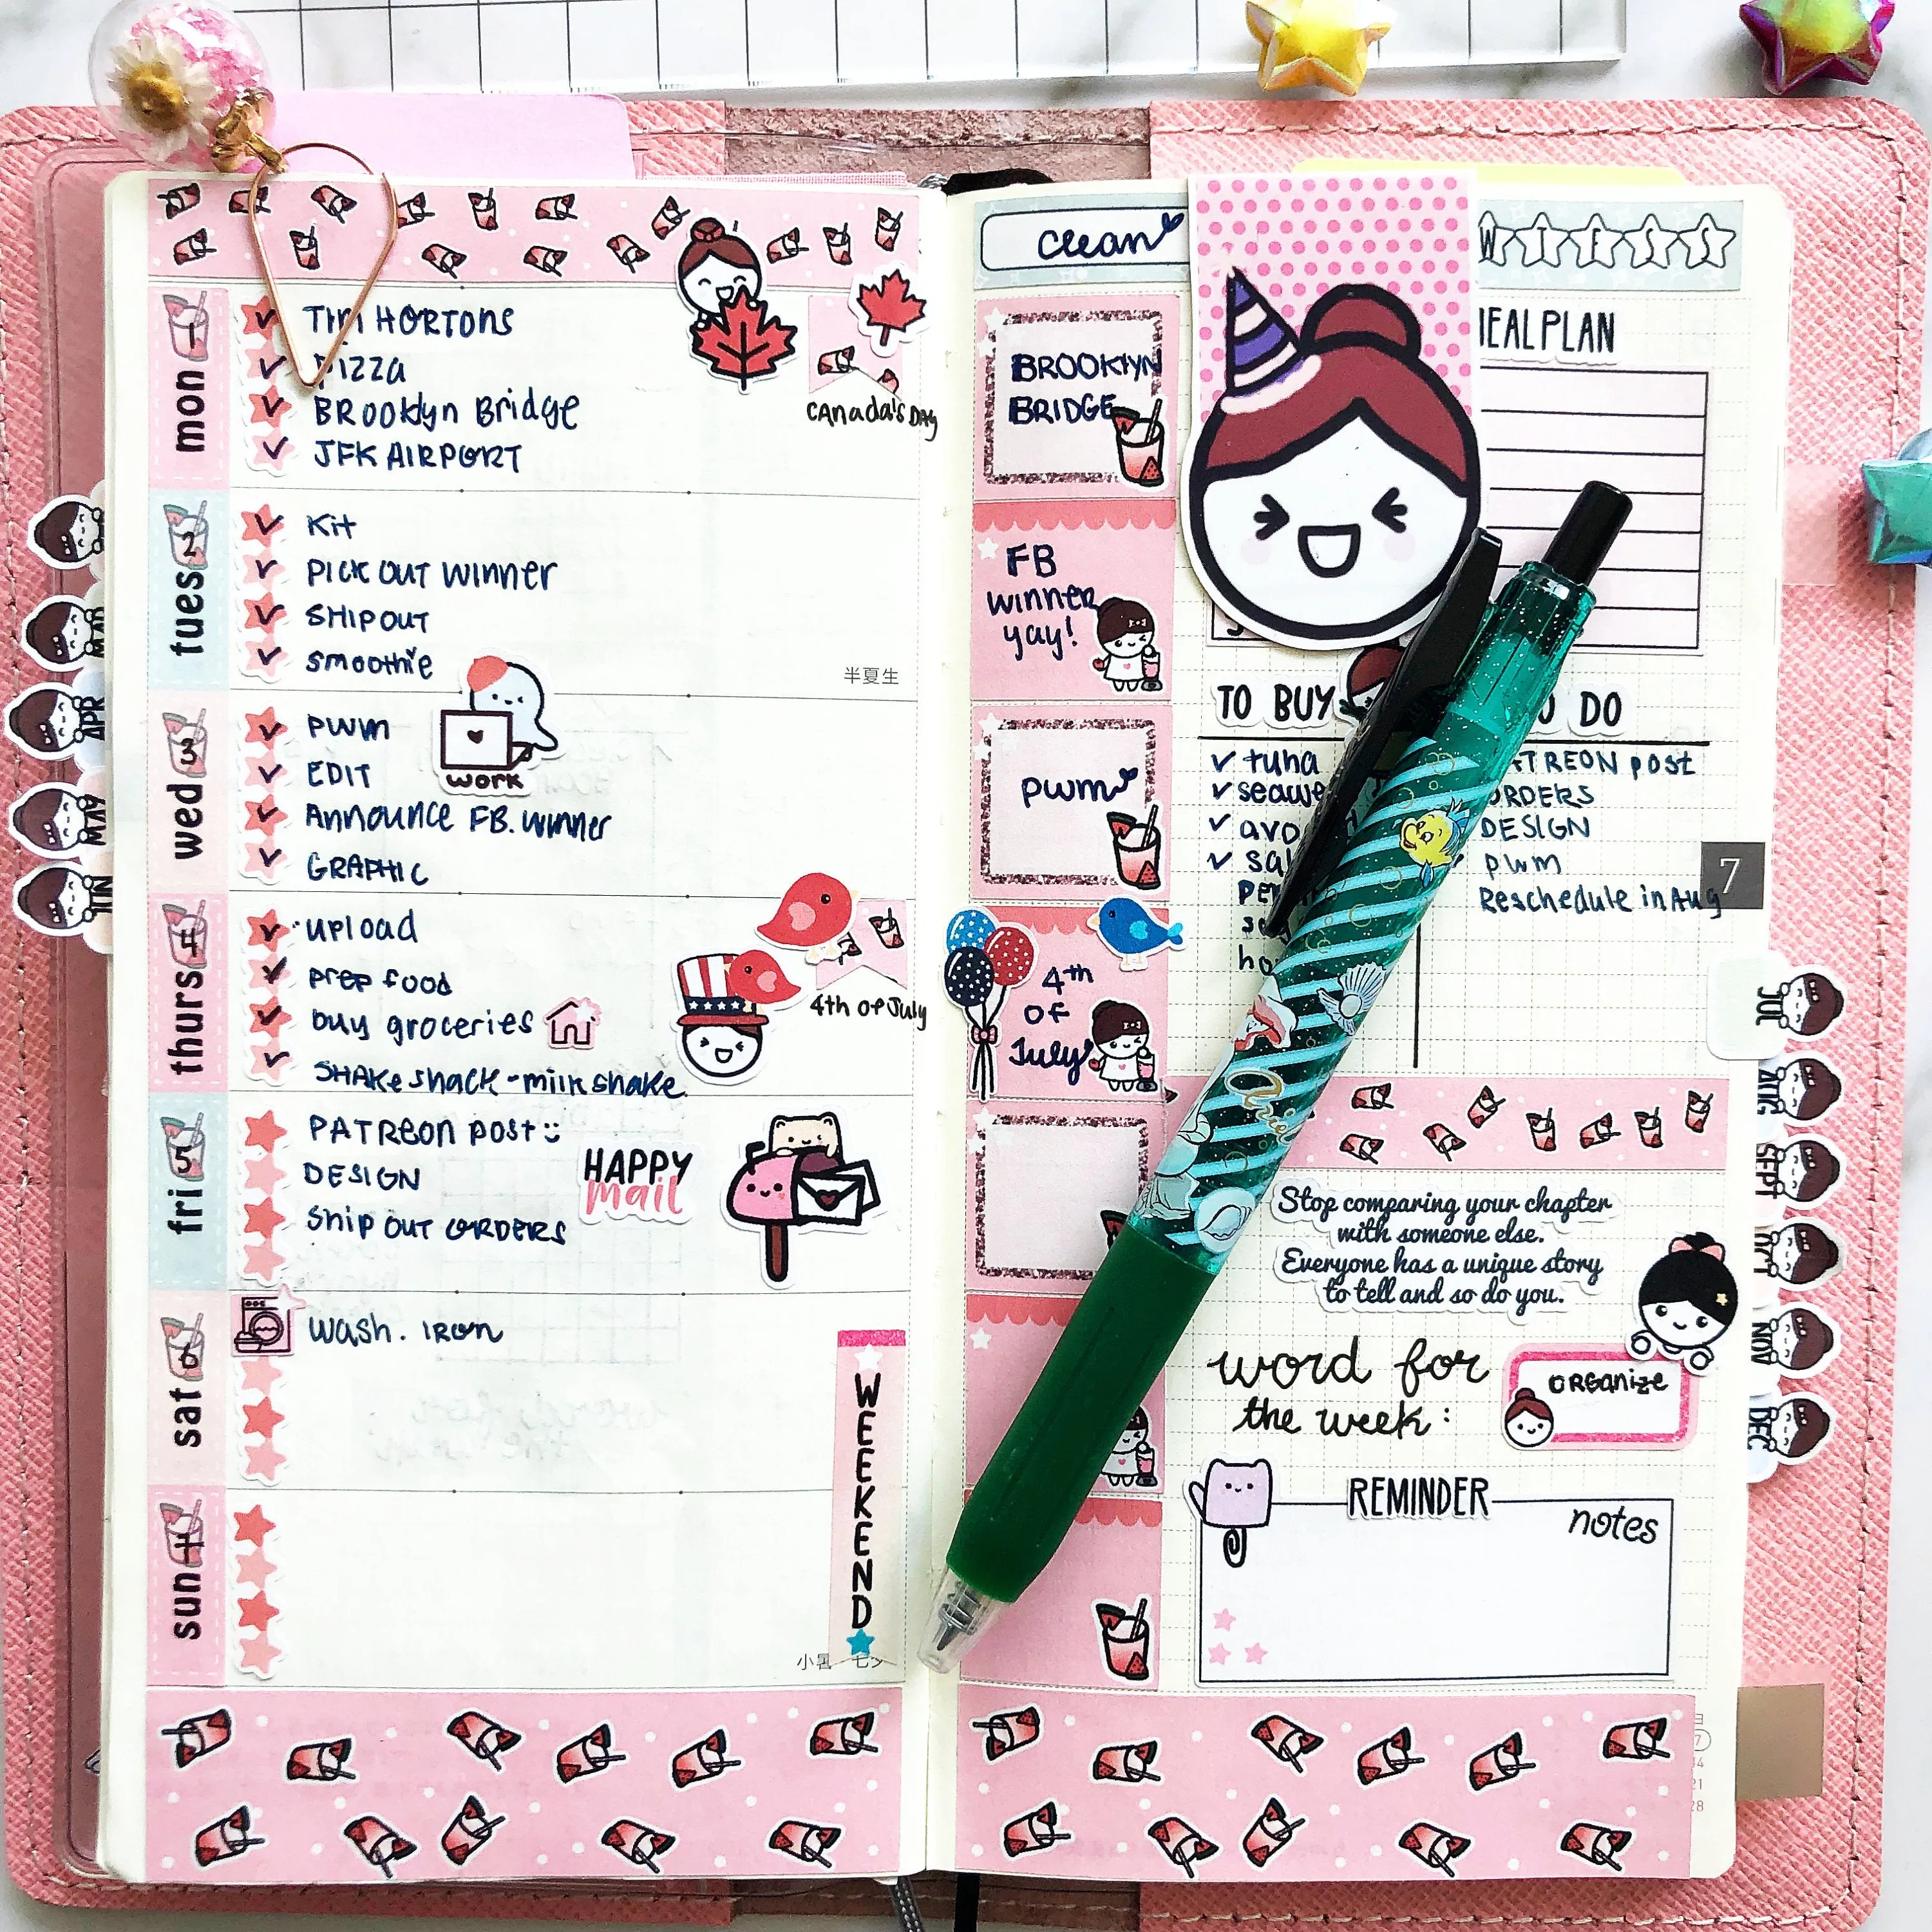 mon
1
TIM HORTONS
PIZZA
BROOKlyn Bridge
JFK AIRPORT
CANada's DAY
tues
2
Kit
PICK OUT WINNER
SHIP OUT
smoothie
半夏生
wed
3
PWM
EDIT
ANNOUNCE FB. WINNER
GRAPHIC
work
thurs
4
upload
prep food
buy groceries
SHAKe shack - milk shake
4th of July
fri
5
PATReon post
DESIGN
Ship OUT ORDERS
HAPPY
mail
sat
6
WASH. IRON
sun
WEEKEND
小暑
MAR
APR
MAY
JUN
clean
BROOKlYN
BRIDGE
FB
winner
yay!
PWM
4th
OF
July
TO BUY
tuna
DO
POST
ORDERS
DESIGN
PWM
Reschedule in Aug
7
Ariel
Stop comparing your chapter
with someone else.
Everyone has a unique story
to tell and so do you.
word for
the week:
ORGANIZE
REMINDER
notes
JUL
AUG
SEPT
OCT
NOV
DEC
21
28